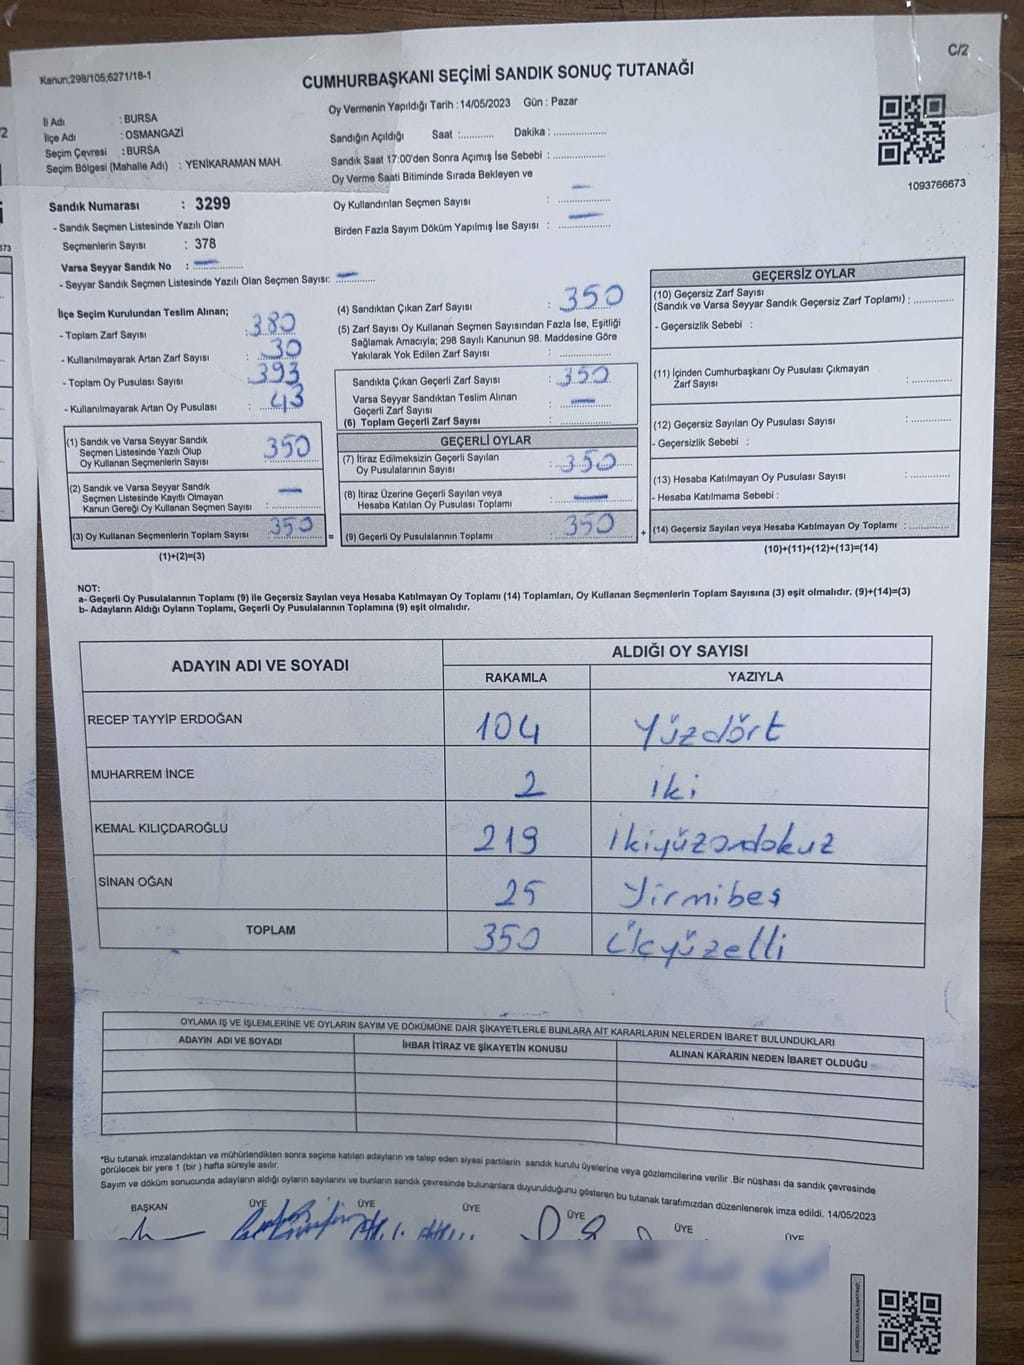 C/2
Kanun;298/105,6271/18-1
CUMHURBAŞKANI SEÇİMİ SANDIK SONUÇ TUTANAĞI
Oy Vermenin Yapıldığı Tarih : 14/05/2023 Gün : Pazar
İl Adı : BURSA
İlçe Adı : OSMANGAZİ
Seçim Çevresi : BURSA
Seçim Bölgesi (Mahalle Adı) : YENİKARAMAN MAH.
Sandığın Açıldığı Saat :............ Dakika : ..................
Sandık Saat 17:00'den Sonra Açımış İse Sebebi : ..................
Oy Verme Saati Bitiminde Sırada Bekleyen ve
Oy Kullandırılan Seçmen Sayısı : —
Birden Fazla Sayım Döküm Yapılmış İse Sayısı : —
1093766673
Sandık Numarası : 3299
- Sandık Seçmen Listesinde Yazılı Olan
Seçmenlerin Sayısı : 378
Varsa Seyyar Sandık No : —
- Seyyar Sandık Seçmen Listesinde Yazılı Olan Seçmen Sayısı: —
İlçe Seçim Kurulundan Teslim Alınan;
- Toplam Zarf Sayısı : 380
- Kullanılmayarak Artan Zarf Sayısı : 30
- Toplam Oy Pusulası Sayısı : 393
- Kullanılmayarak Artan Oy Pusulası : 43
(1) Sandık ve Varsa Seyyar Sandık
Seçmen Listesinde Yazılı Olup
Oy Kullanan Seçmenlerin Sayısı 350
(2) Sandık ve Varsa Seyyar Sandık
Seçmen Listesinde Kayıtlı Olmayan
Kanun Gereği Oy Kullanan Seçmen Sayısı : —
(3) Oy Kullanan Seçmenlerin Toplam Sayısı : 350
(1)+(2)=(3)
(4) Sandıktan Çıkan Zarf Sayısı : 350
(5) Zarf Sayısı Oy Kullanan Seçmen Sayısından Fazla İse, Eşitliği
Sağlamak Amacıyla; 298 Sayılı Kanunun 98. Maddesine Göre
Yakılarak Yok Edilen Zarf Sayısı : ..................
Sandıkta Çıkan Geçerli Zarf Sayısı : 350
Varsa Seyyar Sandıktan Teslim Alınan
Geçerli Zarf Sayısı : —
(6) Toplam Geçerli Zarf Sayısı : ..................
GEÇERLİ OYLAR
(7) İtiraz Edilmeksizin Geçerli Sayılan
Oy Pusulalarının Sayısı : 350
(8) İtiraz Üzerine Geçerli Sayılan veya
Hesaba Katılan Oy Pusulası Toplamı : —
= (9) Geçerli Oy Pusulalarının Toplamı : 350 +
GEÇERSİZ OYLAR
(10) Geçersiz Zarf Sayısı
(Sandık ve Varsa Seyyar Sandık Geçersiz Zarf Toplamı) : ..............
- Geçersizlik Sebebi :
(11) İçinden Cumhurbaşkanı Oy Pusulası Çıkmayan
Zarf Sayısı : ..............
(12) Geçersiz Sayılan Oy Pusulası Sayısı : ..............
- Geçersizlik Sebebi :
(13) Hesaba Katılmayan Oy Pusulası Sayısı : ..............
- Hesaba Katılmama Sebebi :
(14) Geçersiz Sayılan veya Hesaba Katılmayan Oy Toplamı : ..............
(10)+(11)+(12)+(13)=(14)
NOT:
a- Geçerli Oy Pusulalarının Toplamı (9) ile Geçersiz Sayılan veya Hesaba Katılmayan Oy Toplamı (14) Toplamları, Oy Kullanan Seçmenlerin Toplam Sayısına (3) eşit olmalıdır. (9)+(14)=(3)
b- Adayların Aldığı Oyların Toplamı, Geçerli Oy Pusulalarının Toplamına (9) eşit olmalıdır.
ADAYIN ADI VE SOYADI ALDIĞI OY SAYISI
RAKAMLA YAZIYLA
RECEP TAYYİP ERDOĞAN 104 Yüzdört
MUHARREM İNCE 2 iki
KEMAL KILIÇDAROĞLU 219 ikiyüzondokuz
SİNAN OĞAN 25 Yirmibeş
TOPLAM 350 Üçyüzelli
OYLAMA İŞ VE İŞLEMLERİNE VE OYLARIN SAYIM VE DÖKÜMÜNE DAİR ŞİKAYETLERLE BUNLARA AİT KARARLARIN NELERDEN İBARET BULUNDUKLARI
ADAYIN ADI VE SOYADI İHBAR İTİRAZ VE ŞİKAYETİN KONUSU ALINAN KARARIN NEDEN İBARET OLDUĞU
*Bu tutanak imzalandıktan ve mühürlendikten sonra seçime katılan adayların ve talep eden siyasi partilerin sandık kurulu üyelerine veya gözlemcilerine verilir .Bir nüshası da sandık çevresinde
görülecek bir yere 1 (bir ) hafta süreyle asılır.
Sayım ve döküm sonucunda adayların aldığı oyların sayılarını ve bunların sandık çevresinde bulunanlara duyurulduğunu gösteren bu tutanak tarafımızdan düzenlenerek imza edildi. 14/05/2023
BAŞKAN ÜYE ÜYE ÜYE ÜYE ÜYE ÜYE